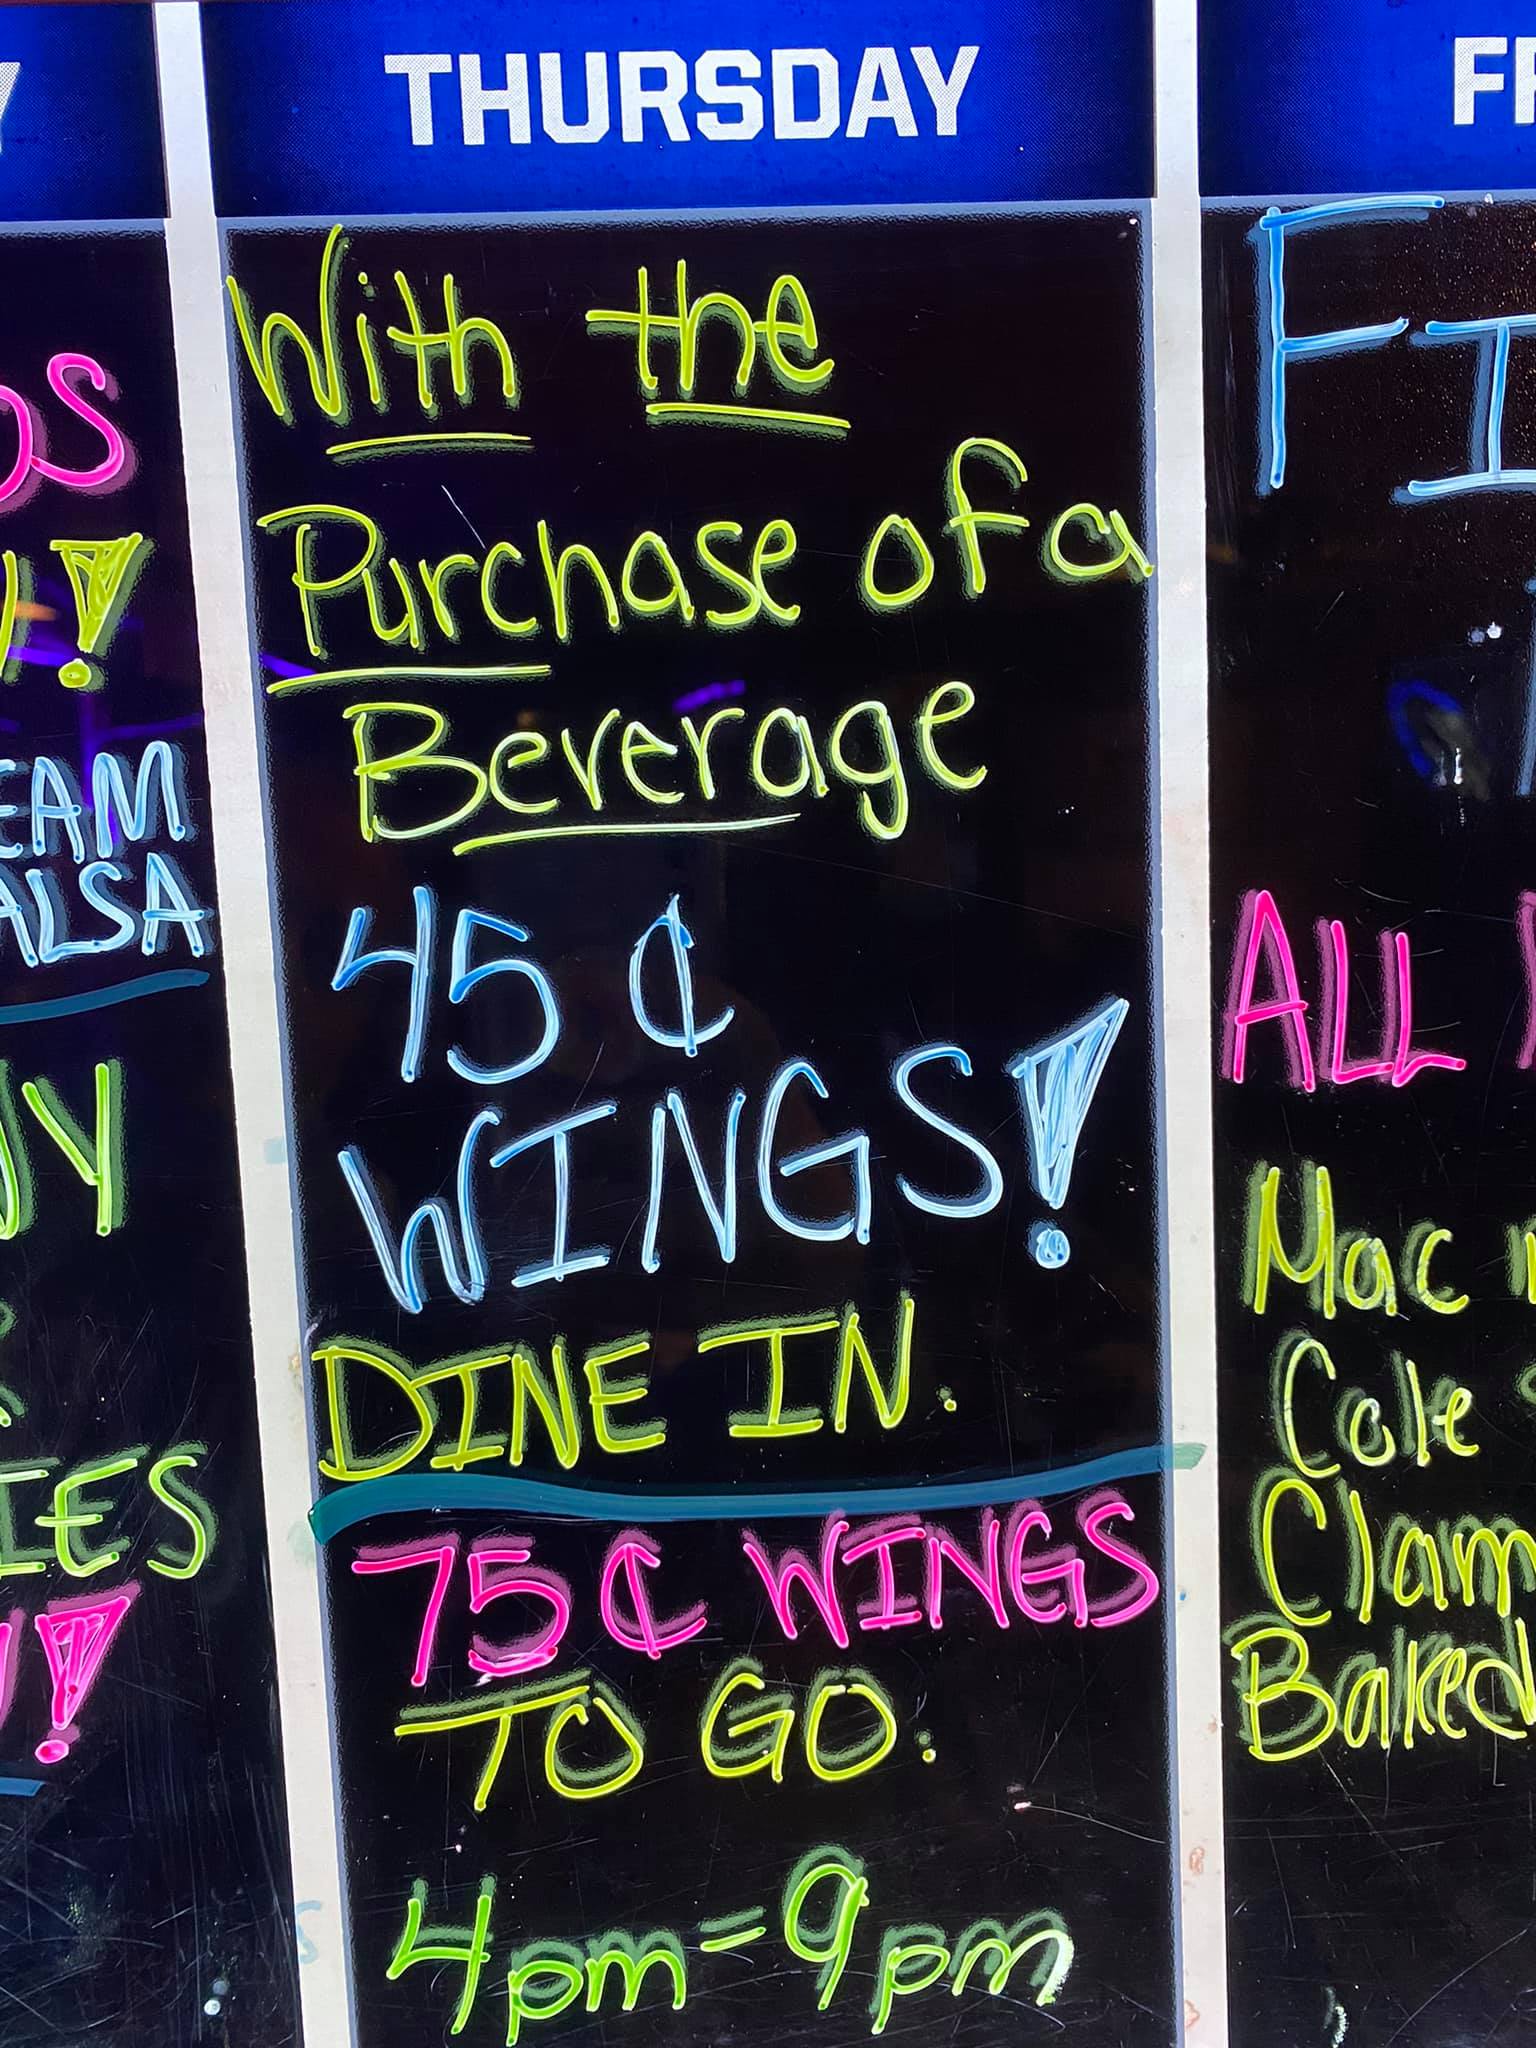 THURSDAY
With the
Purchase of a
Beverage
45¢
WINGS!
DINE IN.
75¢ WINGS
TO GO.
4pm-9pm
EAM
ALSA
ALL
Mac
Cole
Clam
Baked